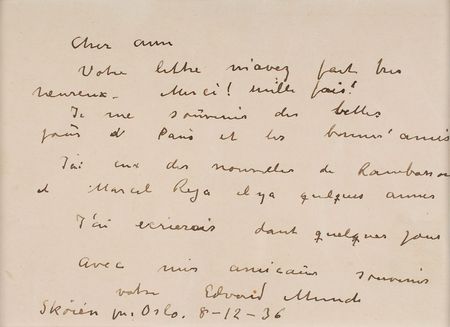 Cher ami
Votre lettre m'avez fait tres
heureux. Merci! mille fois!
Je me souvenir des belles
jours d Paris et les bonnes amis
J'ai eux des nouvelles de
et Marcel Reja il y a quelques annes
J'ai ecrierais dant quelques jours
Avec mis souvenirs
votre Edvard Munch
Skøien pr. Oslo. 8-12-36